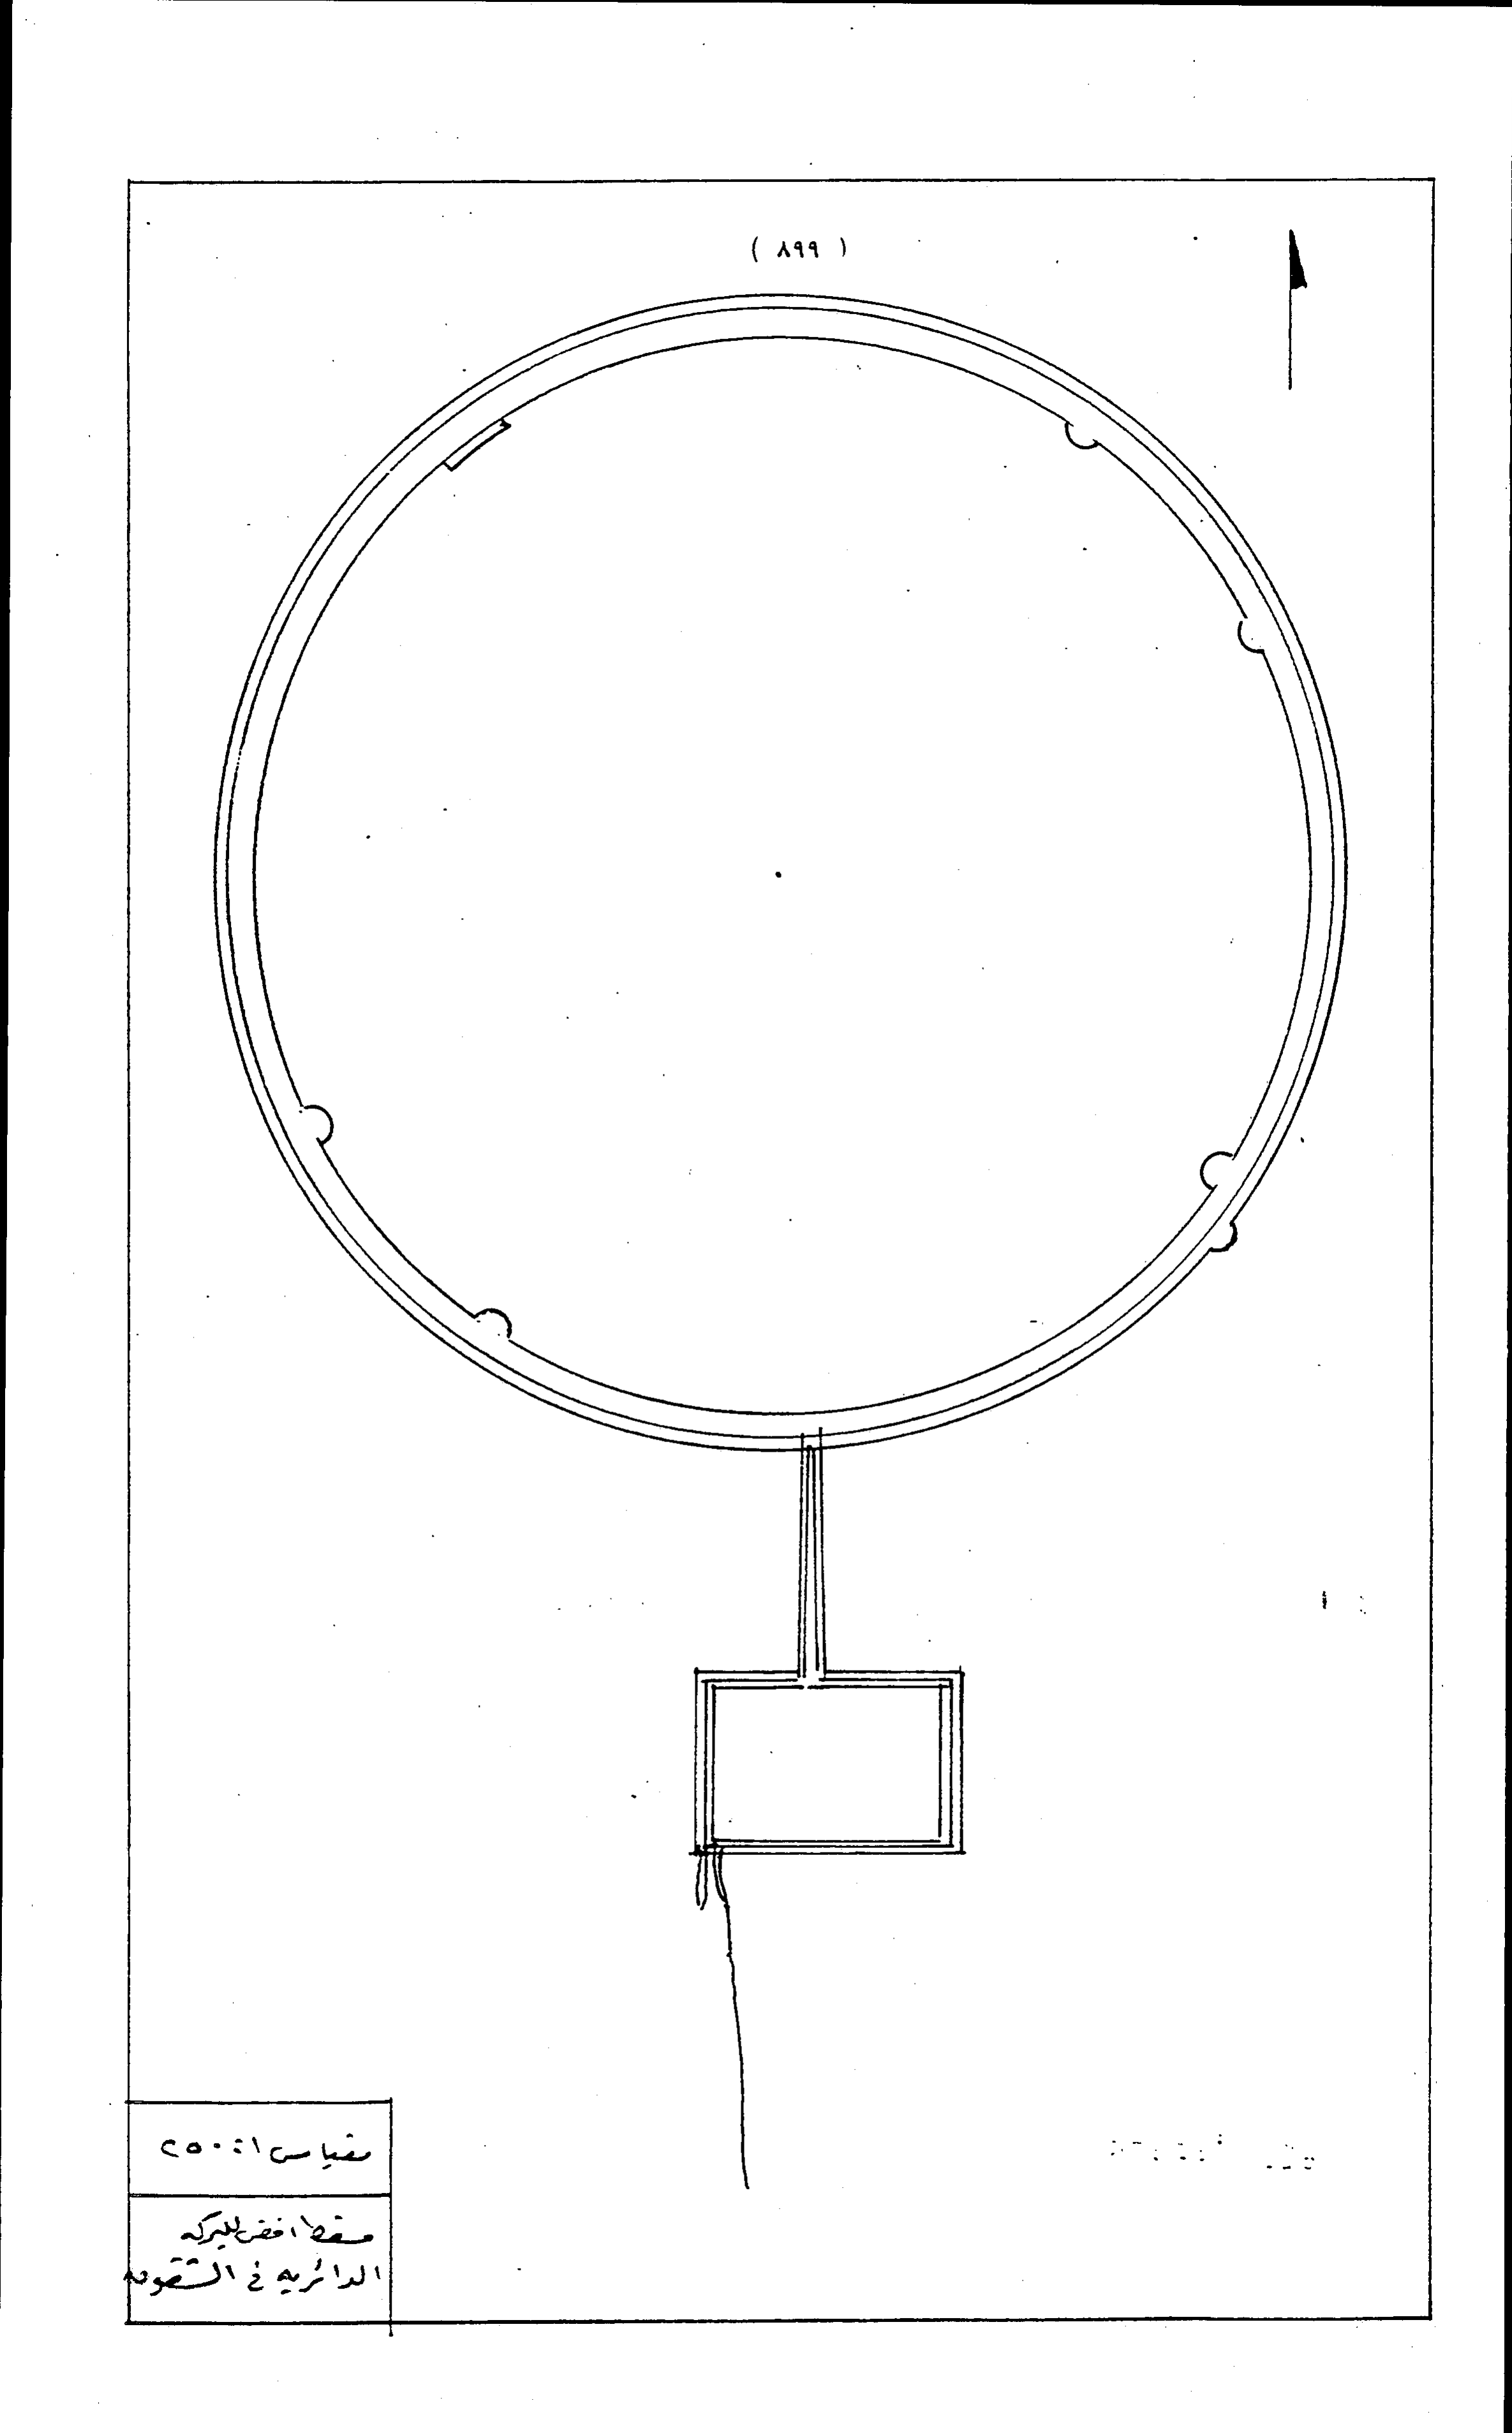 ( ٨٩٩ )
مقياس ١ : ٢٥٠
مسقط افقى للبركه
الدائريه في الشقوق